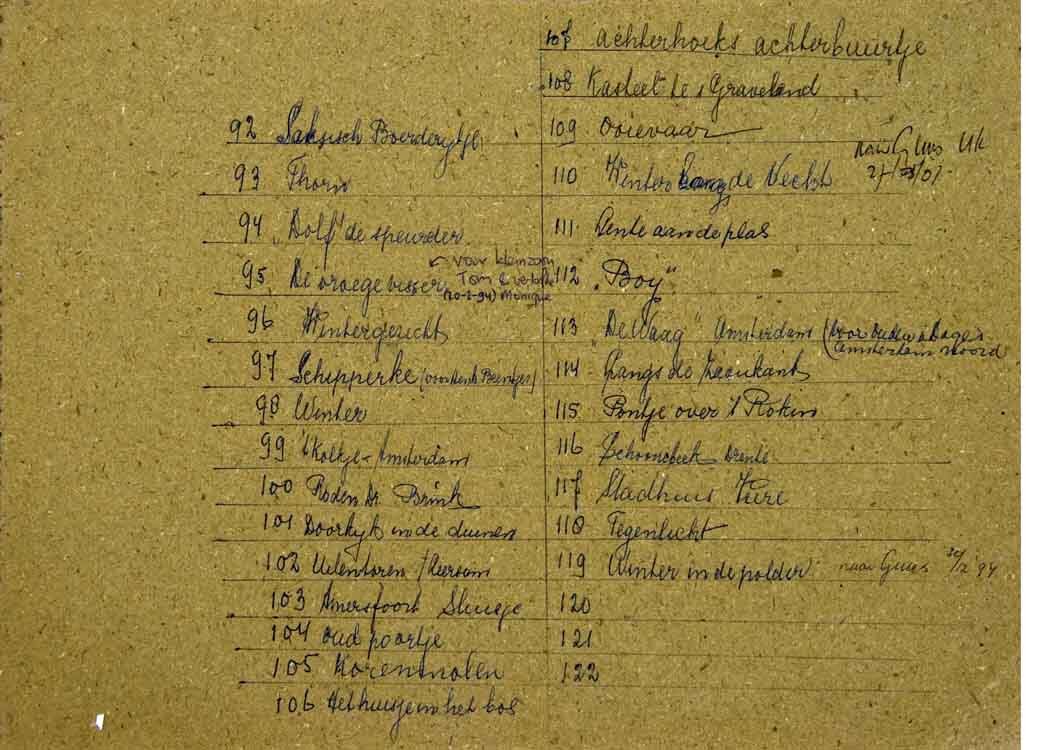 92 Saksisch Boerderytje
93 Thorn
94 "Dolf" de speurder
95 De vroege visser
↙ voor kleinzoon
Tom &
(20-2-94) Monique
96 Wintergezicht
97 Schipperke (voor Henk
98 Winter
99 't Kolkje - Amsterdam
100 Roden Dr. Brink
101 Doorkyk in de duinen
102 Uilentoren
103 Amersfoort
104 oud poortje
105 Korenmolen
106 Het huisje in het bos
107 achterhoeks achterbuurtje
108 Kasteel te s Graveland
109 Ooievaar
110 Winter langs de Vecht
naar Uk
111 Lente aan de plas
112 "Boy"
113 "De Waag" Amsterdam (voor
Amsterdam Noord
114 Langs de
115 Pontje over 't Rokin
116 Schoonebeek Drente
117 Stadhuis Veere
118 Tegenlicht
119 Winter in de polder naar 94
120
121
122